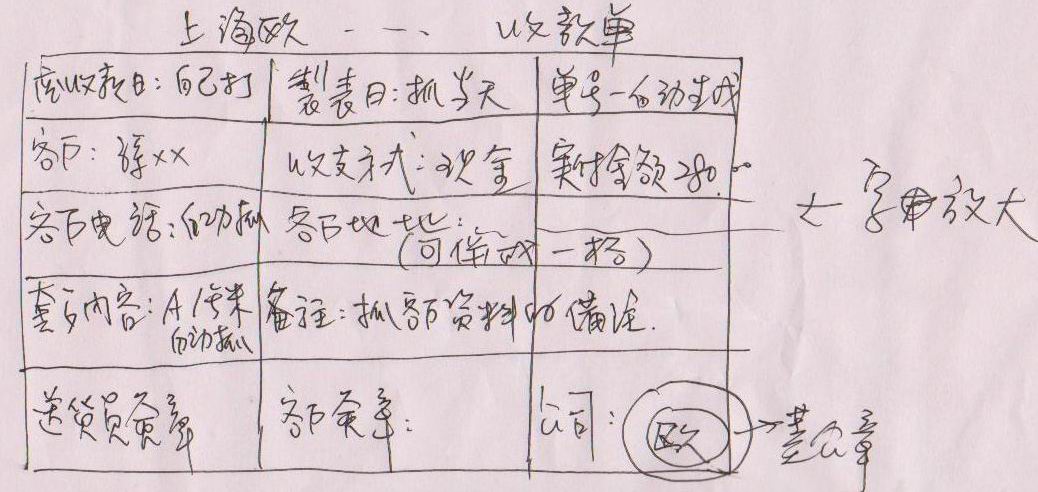 上海欧 - - 、 收款单
应收款日：自己打 製表日：抓当天 单号－自动生成
客户：孫×× 收支方式：现金 実付金额280.00
←字申放大
客户电话：自动抓 客户地址：
（可併成一格）
套餐内容：A 1传来 备注：抓客户资料的備注.
自动抓
送货员签章 客户签章： 公司：欧 → 盖公章